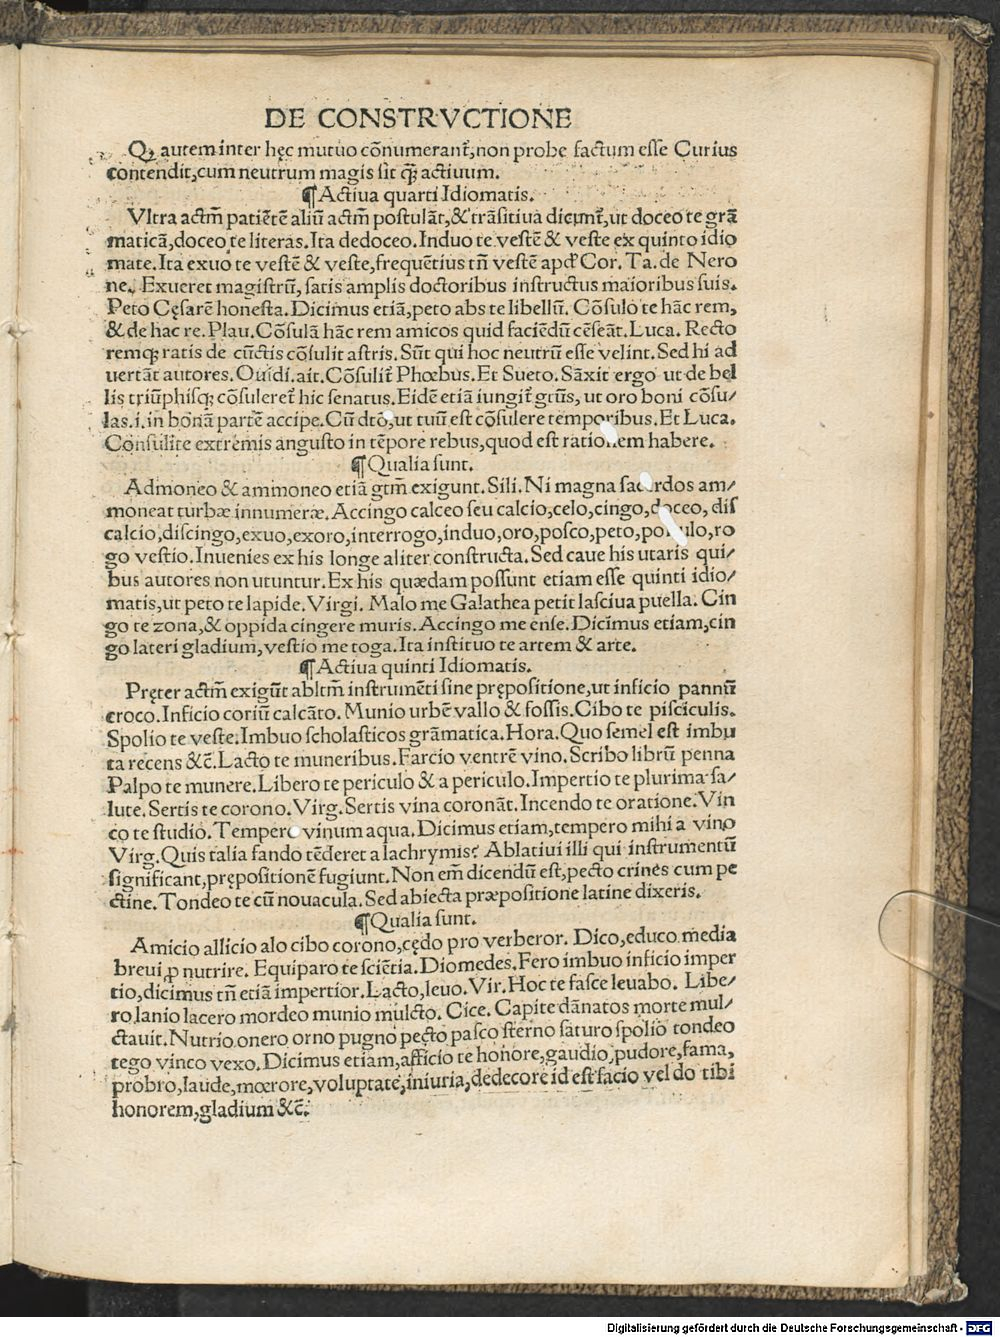 DE CONSTRVCTIONE
Qꝫ autem inter hęc mutuo cōnumeranť, non probe factum esse Curius
contendit, cum neutrum magis sit q̄ꝫ actiuum.
¶Actiua quarti Idiomatis.
Vltra actm̄ patiētē aliū actm̄ postulāt, & trāsitiua dicunť, ut doceo te grā
maticā, doceo te literas. Ita dedoceo. Induo te vestē & veste ex quinto idio
mate. Ita exuo te vestē & veste, frequētius tn̄ vestē apď Cor. Ta. de Nero
ne. Exueret magistrū, satis amplis doctoribus instructus maioribus suis.
Peto Cęsarē honesta. Dicimus etiā, peto abs te libellū. Cōsulo te hāc rem,
& de hac re. Plau. Cōsulā hāc rem amicos quid faciēdū cēseāt. Luca. Recto
remqꝫ ratis de cūctis cōsulit astris. Sūt qui hoc neutrū esse velint. Sed hi ad
uertāt autores. Ouidi. ait. Cōsuliť Phœbus. Et Sueto. Sāxit ergo ut de bel
lis triūphisqꝫ cōsulereť hic senatus. Eidē etiā iungiť gtūs, ut oro boni cōsu/
las. i. in bonā partē accipe. Cū dtō, ut tuū est cōsulere temporibus. Et Luca.
Consulite extremis angusto in tēpore rebus, quod est rationem habere.
¶Qualia sunt.
Admoneo & ammoneo etiā gtm̄ exigunt. Sili. Ni magna sacerdos am/
moneat turbæ innumeræ. Accingo calceo seu calcio, celo, cingo, doceo, dis
calcio, discingo, exuo, exoro, interrogo, induo, oro, posco, peto, postulo, ro
go vestio. Inuenies ex his longe aliter constructa. Sed caue his utaris qui/
bus autores non utuntur. Ex his quædam possunt etiam esse quinti idio/
matis, ut peto te lapide. Virgi. Malo me Galathea petit lasciua puella. Cin
go te zona, & oppida cingere muris. Accingo me ense. Dicimus etiam, cin
go lateri gladium, vestio me toga. Ita instituo te artem & arte.
¶Actiua quinti Idiomatis.
Pręter actm̄ exigūt abltm̄ instrumēti sine prępositione, ut inficio pannū
croco. Inficio coriū calcāto. Munio urbē vallo & fossis. Cibo te pisciculis.
Spolio te veste. Imbuo scholasticos grāmatica. Hora. Quo semel est imbu
ta recens &c̄. Lacto te muneribus. Farcio ventrē vino. Scribo librū penna
Palpo te munere. Libero te periculo & a periculo. Impertio te plurima sa/
lute. Sertis te corono. Virg. Sertis vina coronāt. Incendo te oratione. Vin
co te studio. Tempero vinum aqua. Dicimus etiam, tempero mihi a vino
Virg. Quis talia fando tēderet a lachrymis? Ablatiui illi qui instrumentū
significant, prępositionē fugiunt. Non em̄ dicendū est, pecto crines cum pe
ctine. Tondeo te cū nouacula. Sed abiecta præpositione latine dixeris.
¶Qualia sunt.
Amicio allicio alo cibo corono, cędo pro verberor. Dico, educo media
breui ꝓ nutrire. Equiparo te sciētia. Diomedes. Fero imbuo inficio imper
tio, dicimus tn̄ etiā impertior. Lacto, leuo. Vir. Hoc te fasce leuabo. Libe/
ro lanio lacero mordeo munio mulcto. Cice. Capite dānatos morte mul/
ctauit. Nutrio onero orno pugno pecto pasco sterno saturo spolio tondeo
tego vinco vexo. Dicimus etiam, afficio te honore, gaudio, pudore, fama,
probro, laude, mœrore, voluptate, iniuria, dedecore id est facio vel do tibi
honorem, gladium &c̄.
Digitalisierung gefördert durch die Deutsche Forschungsgemeinschaft - DFG